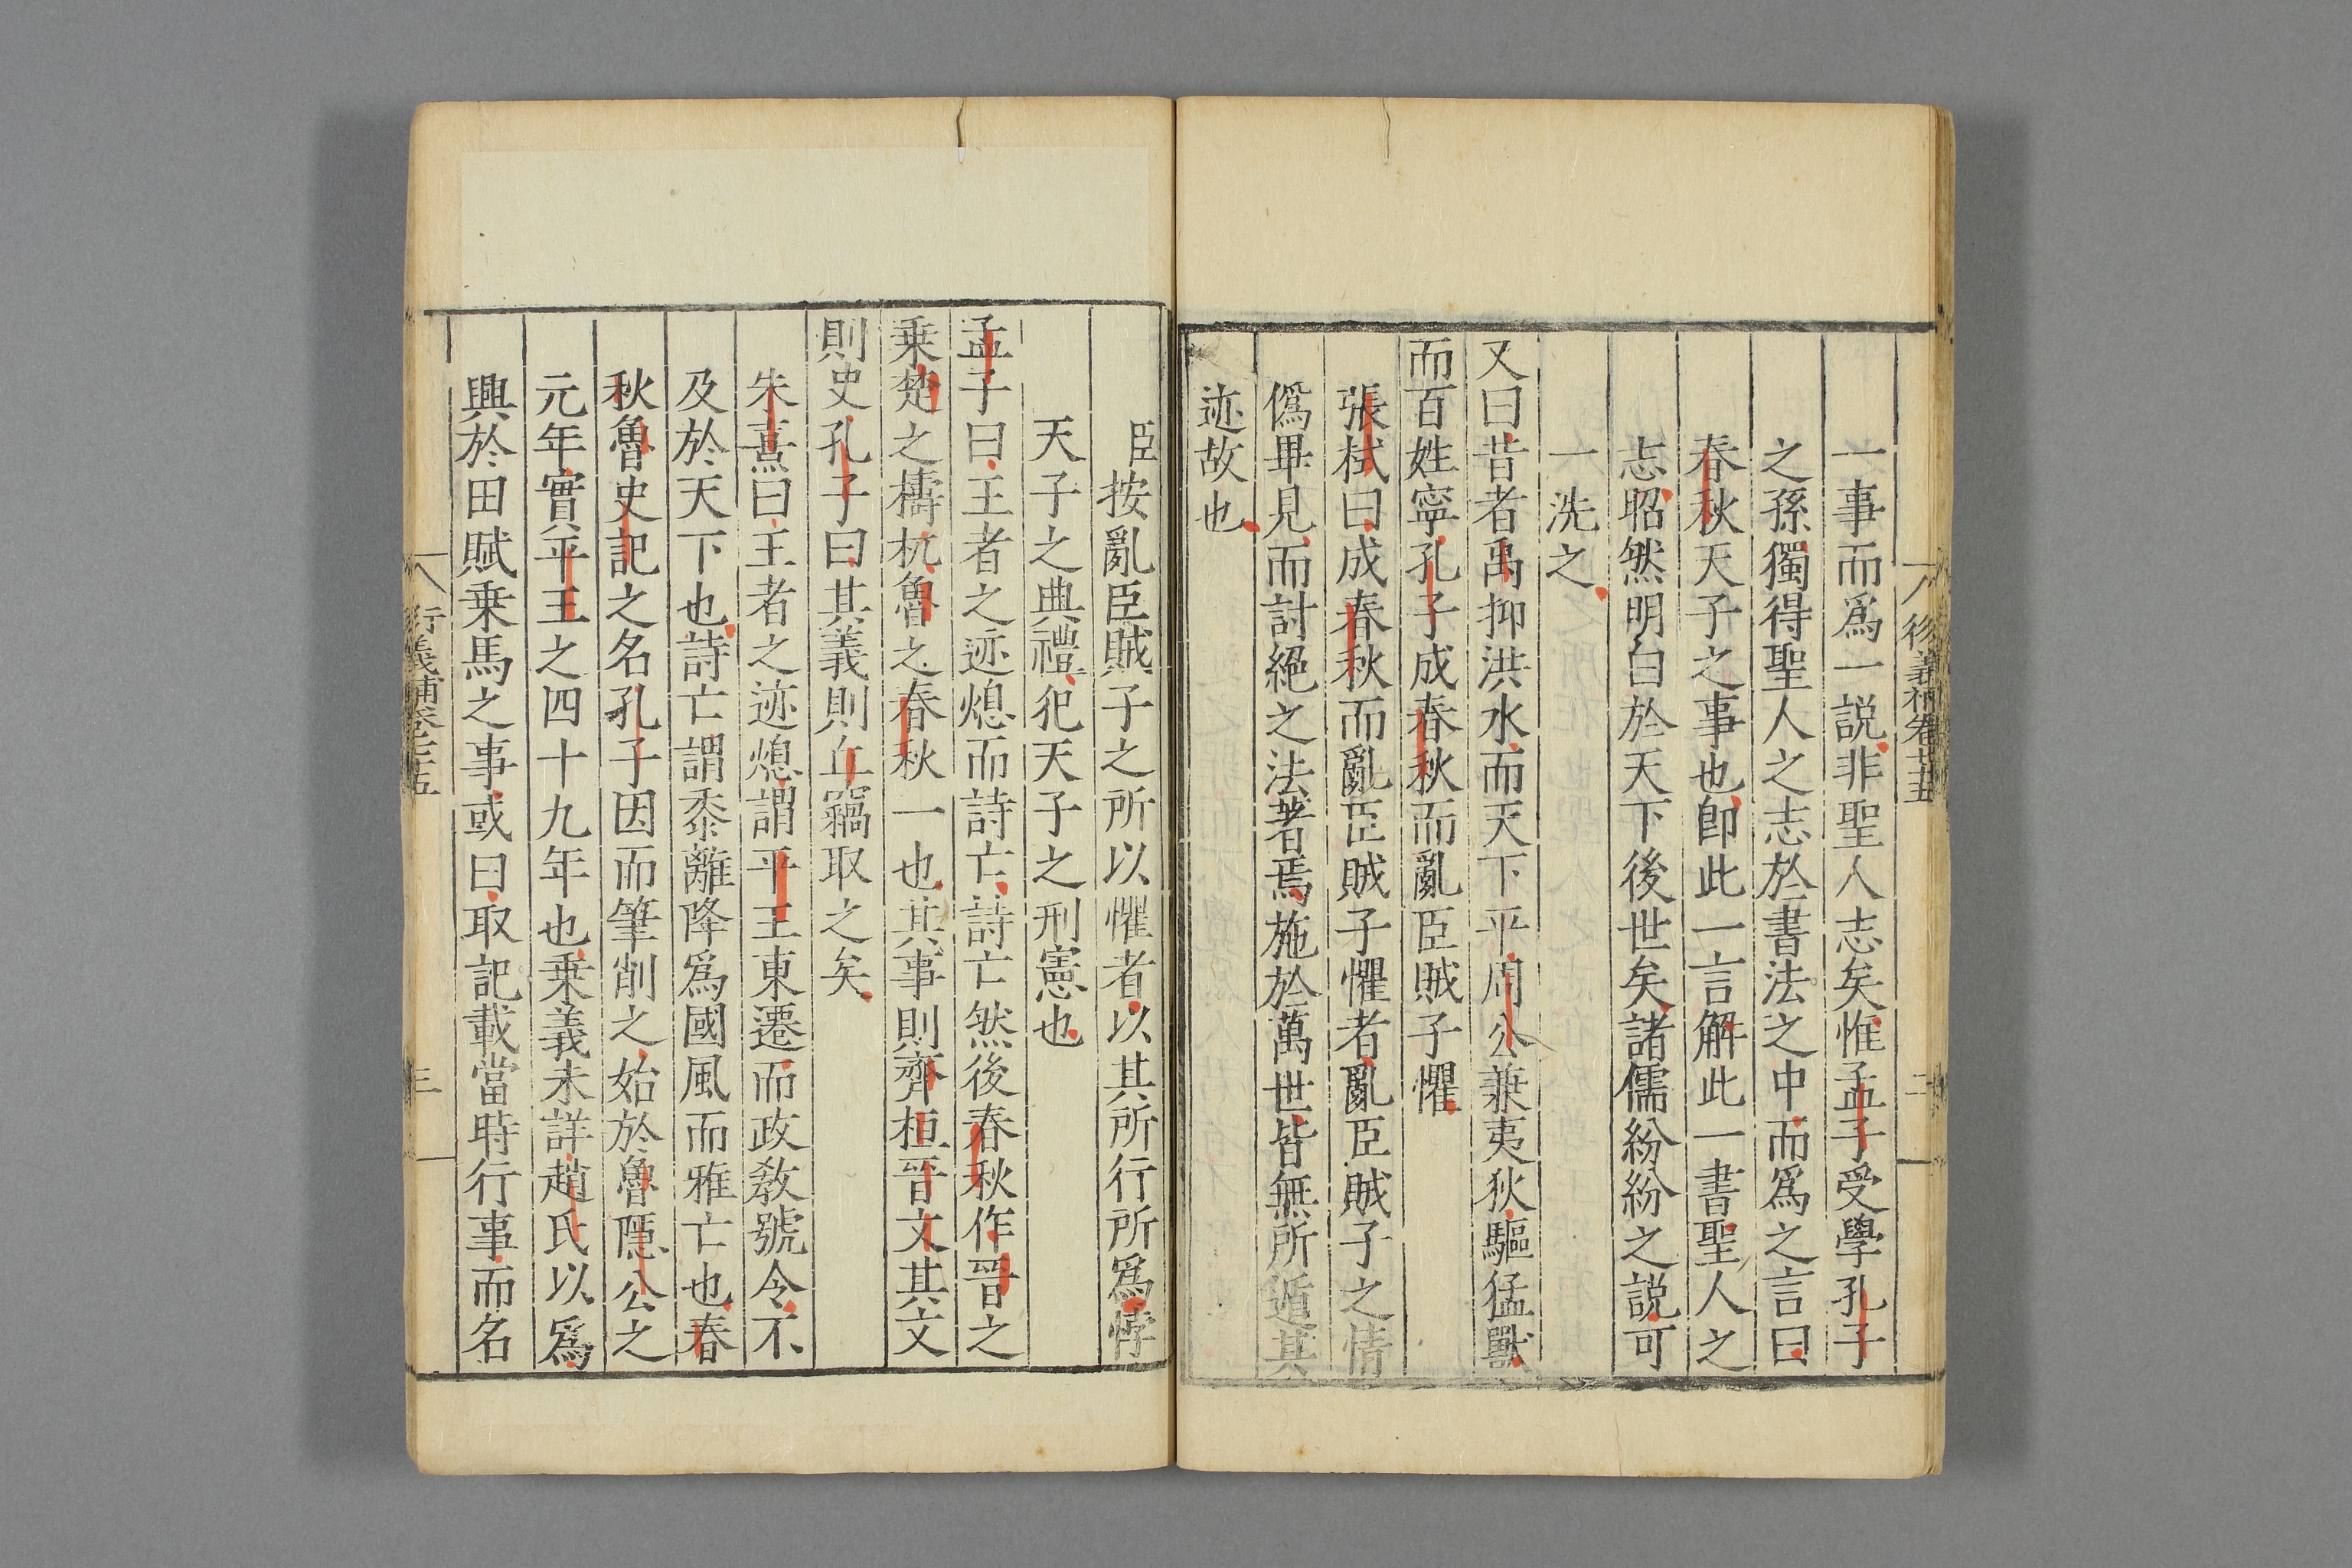 一事而爲一説非聖人志矣惟孟子受學孔子
之孫獨得聖人之志於書法之中而爲之言曰
春秋天子之事也卽此一言解此一書聖人之
志昭然明白於天下後世矣諸儒紛紛之説可
一洗之
又曰昔者禹抑洪水而天下平周公兼夷狄驅猛獸
而百姓寧孔子成春秋而亂臣賊子懼
張栻曰成春秋而亂臣賊子懼者亂臣賊子之情
僞畢見而討絕之法著焉施於萬世皆無所遁其
迹故也
臣按亂臣賊子之所以懼者以其所行所爲悖
天子之典禮犯天子之刑憲也
孟子曰王者之迹熄而詩亡詩亡然後春秋作晉之
乗楚之檮杌魯之春秋一也其事則齊桓晉文其文
則史孔子曰其義則丘竊取之矣
朱熹曰王者之迹熄謂平王東遷而政教號令不
及於天下也詩亡謂黍離降爲國風而雅亡也春
秋魯史記之名孔子因而筆削之始於魯隱公之
元年實平王之四十九年也乗義未詳趙氏以爲
興於田賦乗馬之事或曰取記載當時行事而名
行義補卷七十五
三